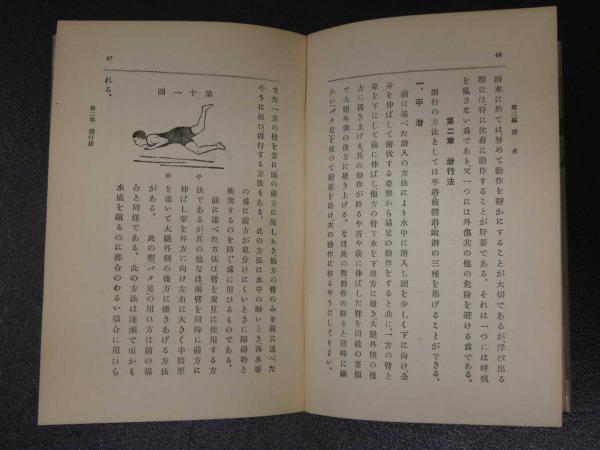 第三編 潜水
46
潜水に於ては、努めて動作を靜かにすることが大切であるが、浮び出る
際には、特に沈着に動作することが肝要である。それは一つには呼吸
を亂さない爲であり、又一つには外傷其の他の危險を避ける爲である。
第二章 潜行法
潜行の方法としては平潜
の三種を擧げることができる。
一、平潜
前に述べた潜入の方法により水中に潜入し、頭を少しく下に向け、全
身を伸ばして俯伏する姿勢から扇足の動作をすると共に、一方の臂と
掌を下にして前に伸ばし、他方の臂で水を下後方に搔き大腿外側の後
方に搔き上げる。其の動作が終るや否や前に伸ばした臂を同樣の要領
で大腿外側の後方に搔き上げる。なほ此の際動作の終ると同時に細
かいバタ足を使つて前進を助け、次の動作に移るやうにしてもよい。
また一方の臂を常に頭の前方に出しおき、他方の臂のみを前に述べた
やうに使ひ潜行する方法もある。此の方法は水中の暗いとき、濁水等
の爲に前方が見分けにくいときに障碍物と
衝突するのを防ぐ爲に用ひるものである。
前に述べた方法は臂を交互に使用する方
法であるが、其の他なほ兩臂を同時に前方に
伸ばし掌を外方に向け左右に大きく半圓形
を畫いて大腿外側の後方に搔きあげる方法
がある。此の際バタ足の用ひ方は前の場
合と同樣である。此の方法は淺瀨で而かも
水底を蹴るのに都合のわるい場合に用ひら
れる。
第十一圖
第二章 潜行法
47